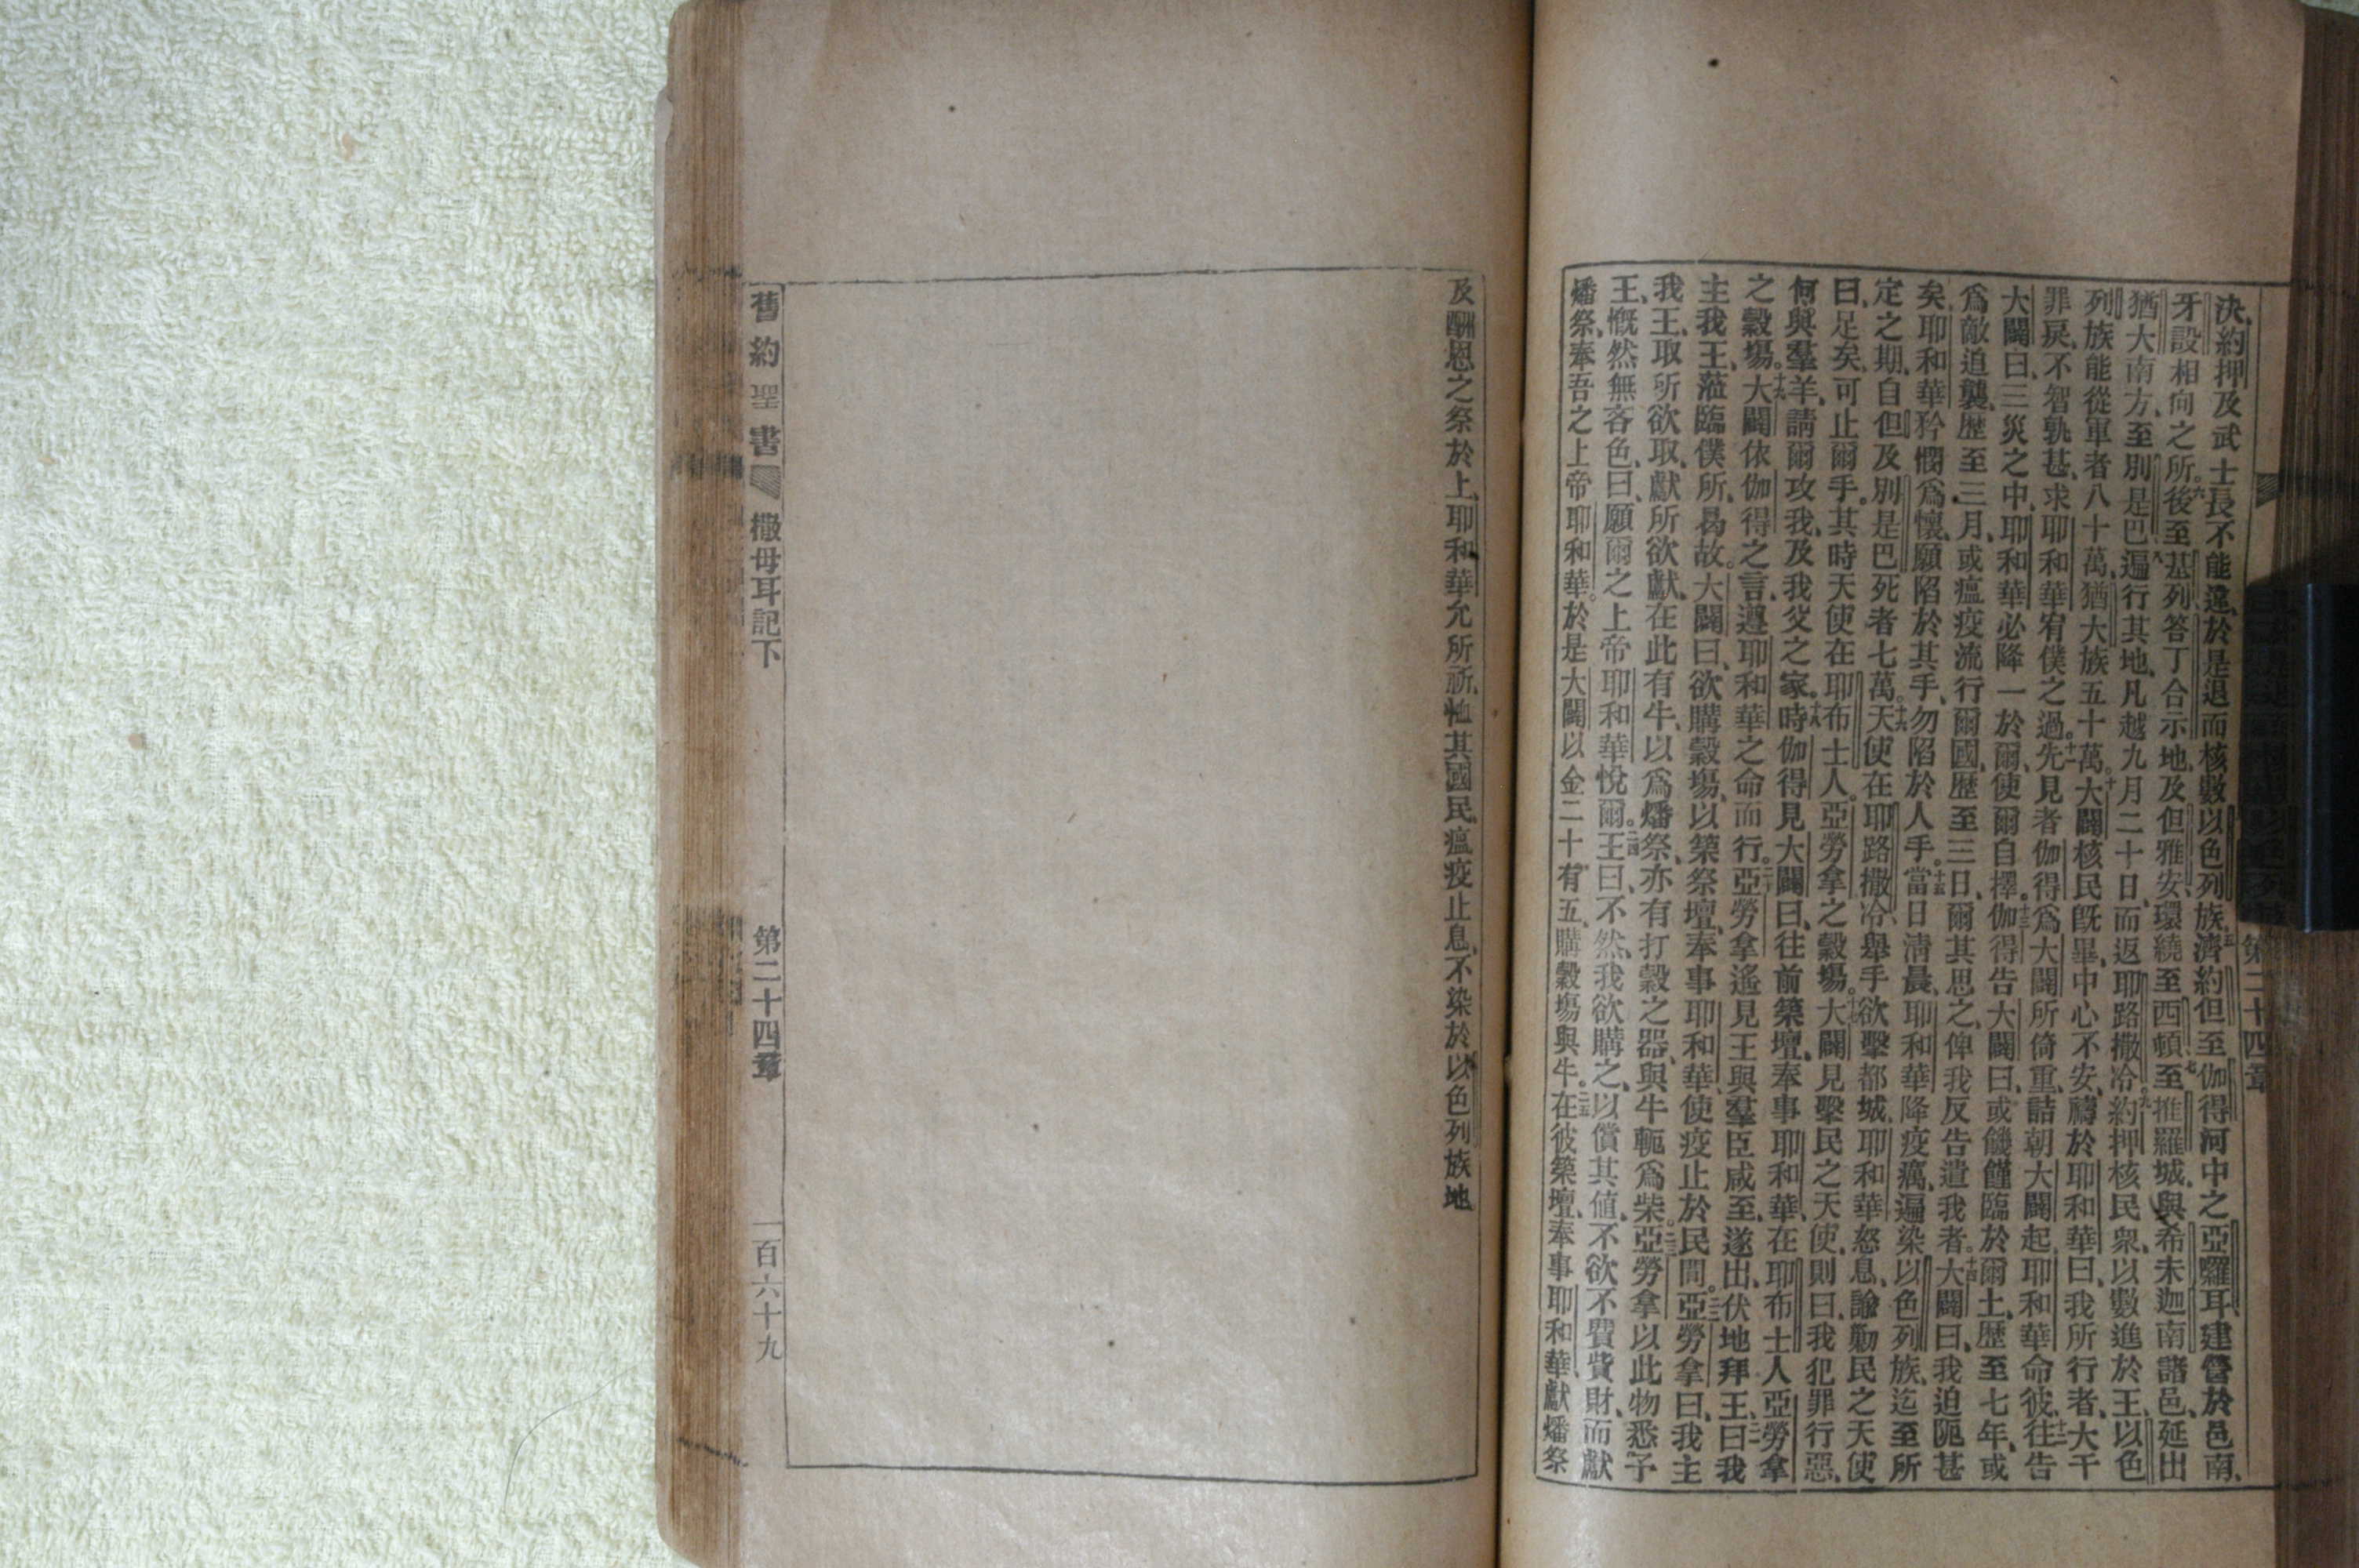 決、約押及武士長不能違、於是退而核數以色列族、五濟約但至伽得河中之亞囉耳、建營於邑南、
牙設相向之所。六後至基列、答丁合示地、及但雅安、環繞至西頓、七至推羅城、與希未迦南諸邑、延出
猶大南方、至別是巴、八遍行其地、凡越九月二十日、而返耶路撒冷。九約押核民衆、以數進於王、以色
列族能從軍者八十萬、猶大族五十萬。十大闢核民旣畢、中心不安、禱於耶和華曰、我所行者、大干
罪戾、不智孰甚、求耶和華宥僕之過。十一先見者伽得爲大闢所倚重、詰朝大闢起、耶和華命彼、十二往告
大闢曰、三災之中、耶和華必降一於爾、使爾自擇。十三伽得告大闢曰、或饑饉臨於爾土、歷至七年、或
爲敵追襲、歷至三月、或瘟疫流行爾國、歷至三日、爾其思之、俾我反告遣我者。十四大闢曰、我迫阨甚
矣、耶和華矜憫爲懷、願陷於其手、勿陷於人手。十五當日淸晨、耶和華降疫癘、遍染以色列族、迄至所
定之期、自但及別是巴、死者七萬。十六天使在耶路撒冷、舉手欲擊都城、耶和華怒息、諭勦民之天使
曰、足矣、可止爾手。其時天使在耶布士人亞勞拿之穀塲。十七大闢見擊民之天使、則曰、我犯罪行惡、
何與羣羊、請爾攻我、及我父之家。十八時伽得見大闢曰、往前築壇、奉事耶和華、在耶布士人亞勞拿
之穀塲。十九大闢依伽得之言、遵耶和華之命而行。二十亞勞拿遙見王與羣臣咸至、遂出、伏地拜王、二一曰、我
主我王、蒞臨僕所、曷故。大闢曰、欲購穀塲、以築祭壇、奉事耶和華、使疫止於民間。二二亞勞拿曰、我主
我王、取所欲取、獻所欲獻、在此有牛、以爲燔祭、亦有打穀之器、與牛軛爲柴。二三亞勞拿以此物悉予
王、慨然無吝色、曰、願爾之上帝耶和華悅爾。二四王曰、不然、我欲購之、以償其値、不欲不費貲財、而獻
燔祭、奉吾之上帝耶和華。於是大闢以金二十有五、購穀塲與牛。二五在彼築壇、奉事耶和華、獻燔祭
第二十四章
及酬恩之祭於上、耶和華允所祈、恤其國民、瘟疫止息、不染於以色列族地。
舊約聖書 撒母耳記下 第二十四章 一百六十九